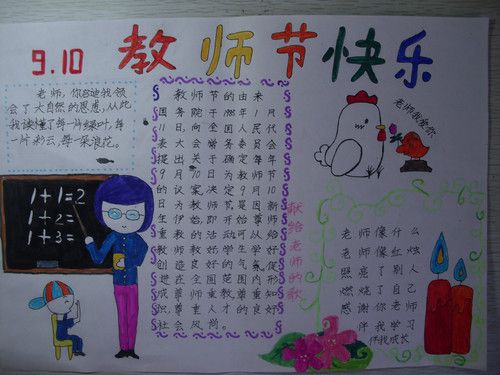 9.10 教师节快乐
老师,你台迪我领
会了大自然的恩惠,从此
我读懂了每一片绿叶,每
一片彩云,每一朵浪花。
教师节的由来
国务院于1985年1月
11日,向全国人民代
表大会常务委员会
提出关于确定每年
9月10日为教师节
的议案,决定9月10
日为教师节是因新
生伊始即开始尊师
重教的活动可从给
教师教好学生学好
创造良好的气氛促
进在全国范围内形
成尊师重教尊重知
识,尊重人才的良好
社会风尚。
老师我爱你
1+1=2
1+2=
1+3=
献给老师的歌
老师像什么
老师像红烛
照亮了别人
燃烧了自己
感谢你老师
伴我学习
伴我成长